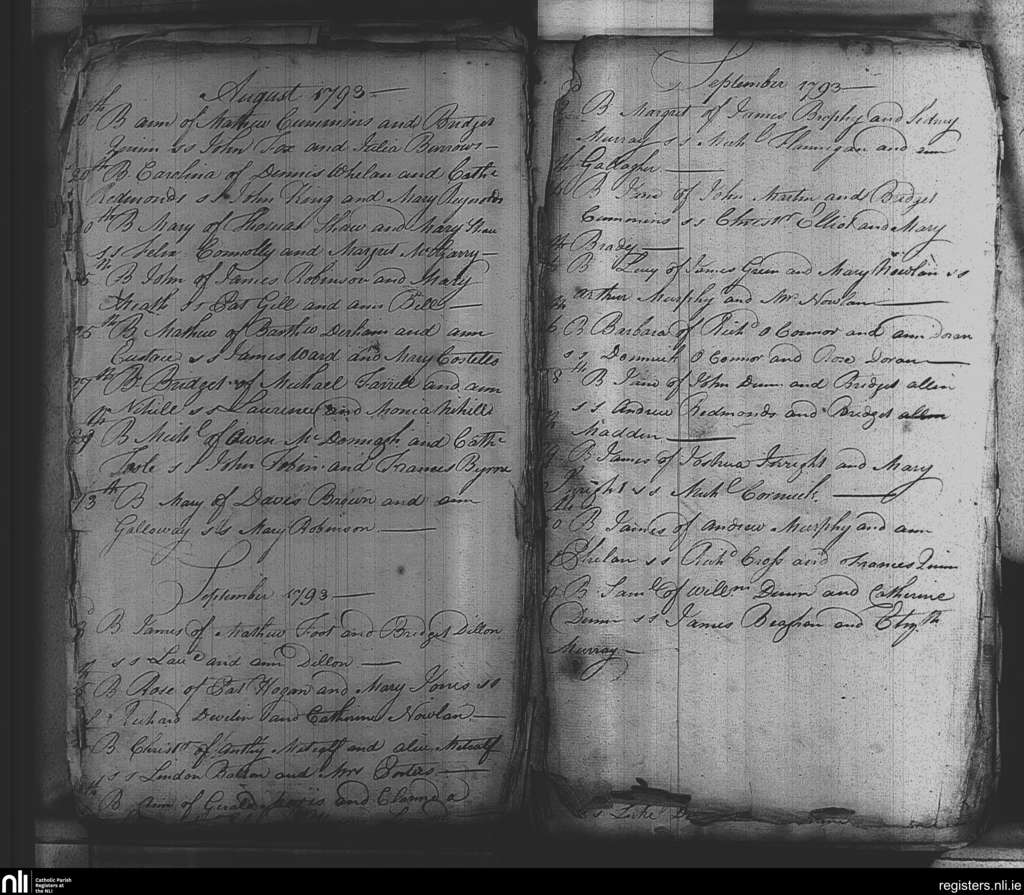 August 1793 —
th
B ann of Mathew Cummins and Bridget
ss John Fox and Julia Burrows —
20th B Carolina of Dennis Whelan and Cathe
Redmonds ss John King and Mary Reynolds
th B Mary of Thomas Shaw and Mary Shaw
ss Felix Connolly and Margret McGarry —
B John of James Robinson and Mary
Heath ss Patt Gill and ann Gill —
25th B Mathew of Barthw Derham and ann
Eustace ss James Ward and Mary Costello
27th B Bridget of Michael Farrell and ann
Nihill ss Laurence and Monica Nihill
29th B Michl of Owen McDonnogh and Cathe
Toole ss John Tobin and Frances Byrne
13th B Mary of David Brown and ann
Galloway ss Mary Robinson —
September 1793 —
B James of Mathew Foot and Bridget Dillon
ss Laud and ann Dillon —
B Rose of Patt Hogan and Mary Jones ss
Richard Develin and Catherine Nowlan —
B Christr of Anthy Metcalf and alice Metcalf
ss Lindon Batson and Mrs —
B ann of and
September 1793 —
B Margret of James Brophy and Sidney
Murray ss Michl Flannigan and ann
Gallagher —
B Jane of John Martin and Bridget
Cummins ss Christr Elliot and Mary
Brady —
B Lucy of James Green and Mary Nowlan ss
arthur Murphy and Mrs Nowlan —
B Barbara of Richd O Connor and ann Doran
ss Dominick O Connor and Rose Doran —
8th B Jane of John Dunn and Bridget allen
ss Andrew Redmonds and Bridget allen
Madden —
B James of Joshua Wright and Mary
Wright ss Michl Cormick —
B James of Andrew Murphy and ann
Phelan ss Richd Cross and Frances Quinn
B Saml of Willm Dunn and Catherine
Dunn ss James Beaghan and Elizth
Murray —
ss Luke
nli
Catholic Parish
Registers at
the NLI
registers.nli.ie